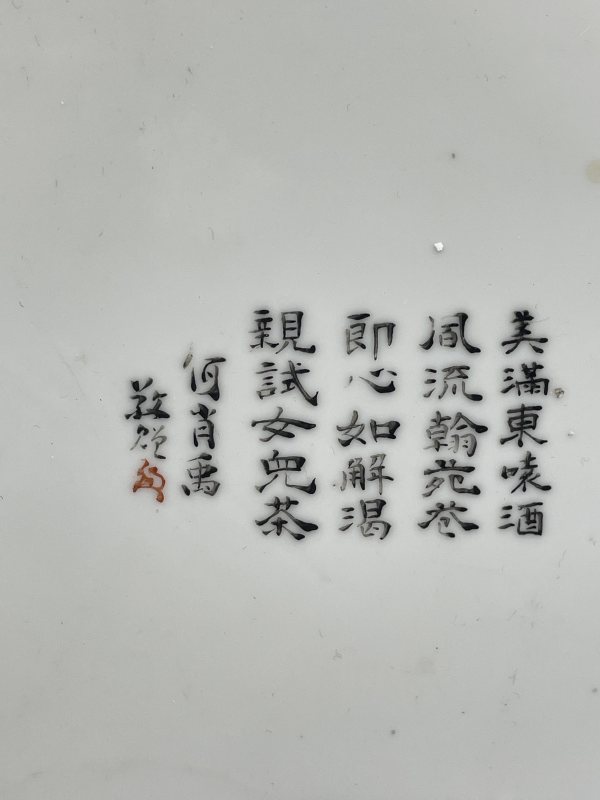 美滿東酒
風流翰苑
即心如解渴
親試女兒茶
何肖禹
敬贈